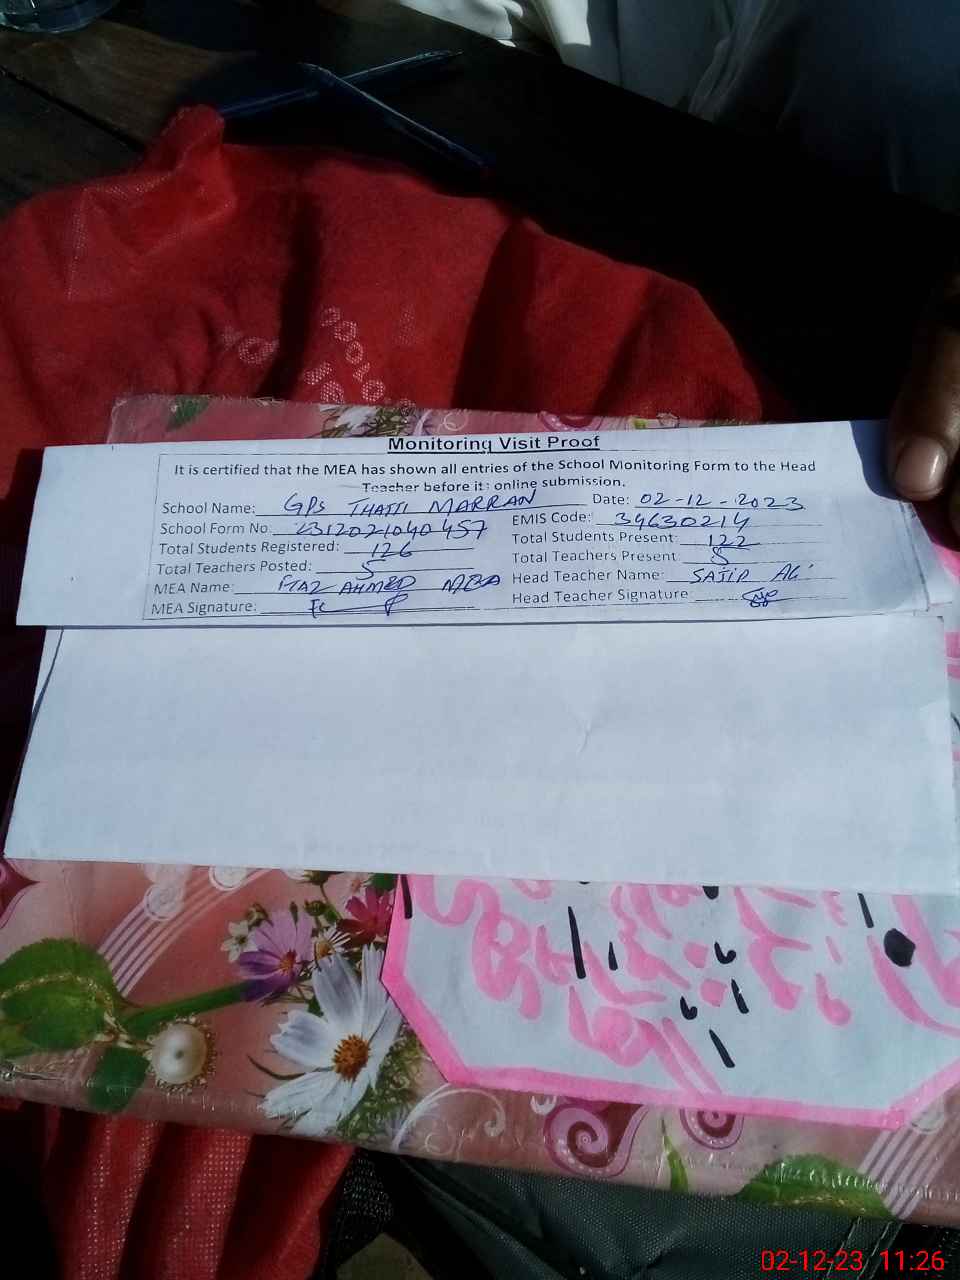 Monitoring Visit Proof
It is certified that the MEA has shown all entries of the School Monitoring Form to the Head
Teacher before it: online submission.
School Name: GPS THATTI MARRAN Date: 02-12-2023
School Form No: 2312021040457 EMIS Code: 34630214
Total Students Registered: 126 Total Students Present: 122
Total Teachers Posted: 5 Total Teachers Present: 5
MEA Name: FIAZ AHMED MEA Head Teacher Name: SAJID ALI
MEA Signature: Head Teacher Signature:
02-12-23 11:26